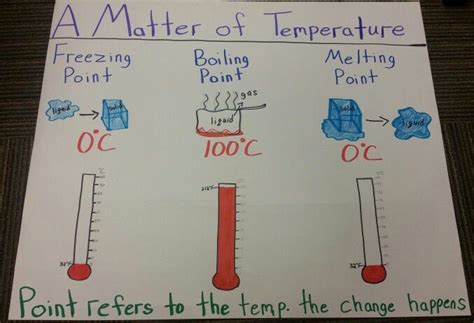 A Matter of Temperature
Freezing Point
Boiling Point
Melting Point
liquid → solid
gas
liquid
solid → liquid
0°C
100°C
0°C
32°F
212°F
32°F
Point refers to the temp. the change happens